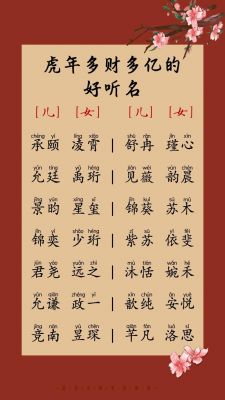 虎年多财多亿的
好听名
[儿] [女] [儿] [女]
chéng yí líng xiāo shū rǎn jǐn xīn
承颐 凌霄 | 舒冉 瑾心
yǔn tíng yǔ héng jiàn wēi yùn chén
允廷 禹珩 | 见薇 韵晨
jǐng yún xīng xǐ jǐn kuí sū mù
景昀 星玺 | 锦葵 苏木
jǐn yì shào héng zǐ sū yī fěi
锦奕 少珩 | 紫苏 依斐
jūn yáo yuǎn zhī mù tián wǎn hé
君尧 远之 | 沐恬 婉禾
yǔn qiān zhèng yī xīn chún ān yuè
允谦 政一 | 歆纯 安悦
jìng nán yù chēn qiān fán luò sī
竞南 昱琛 | 芊凡 洛思